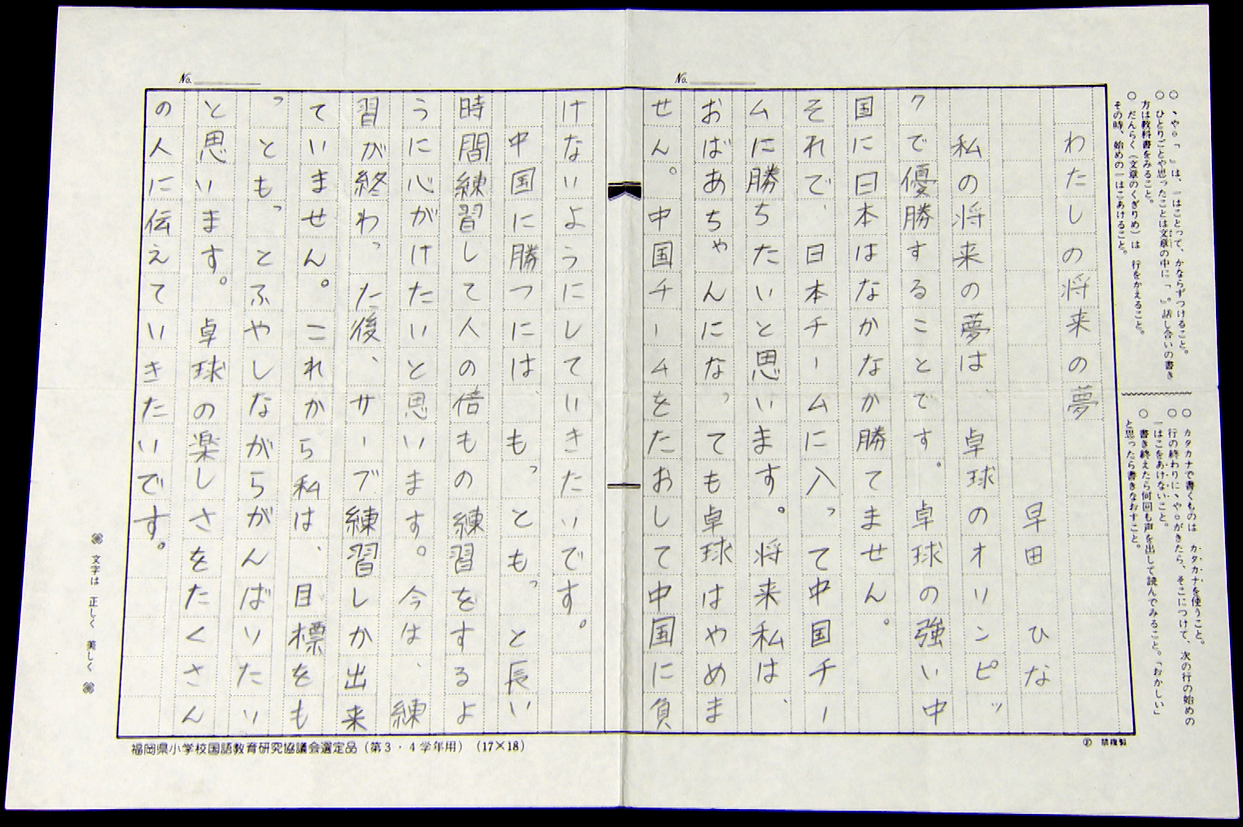 ○ 、や。「 」は、一はことって、かならずつけること。
○ ひとりごとや思ったことは文章の中に「 」。話し合いの書き
方は教科書をみること。
○ だんらく(文章のくぎりめ)は 行をかえること。
その時、始めの一はこあけること。
○ カタカナで書くものは カタカナを使うこと。
○ 行の終わりに、や。がきたら、そこにつけて、次の行の始めの
一はこをあけないこと。
○ 書き終えたら何回も声を出して読んでみること。「おかしい」
と思ったら書きなおすこと。
No.
わたしの将来の夢
早田 ひな
私の将来の夢は、卓球のオリンピッ
クで優勝することです。卓球の強い中
国に日本はなかなか勝てません。
それで、日本チームに入って中国チー
ムに勝ちたいと思います。将来私は、
おばあちゃんになっても卓球はやめま
せん。中国チームをたおして中国に負
No.
けないようにしていきたいです。
中国に勝つには、もっともっと長い
時間練習して人の倍もの練習をするよ
うに心がけたいと思います。今は、練
習が終わった後、サーブ練習しか出来
ていません。これから私は、目標をも
っともっとふやしながらがんばりたい
と思います。卓球の楽しさをたくさん
の人に伝えていきたいです。
文字は 正しく 美しく
福岡県小学校国語教育研究協議会選定品(第3・4学年用)(17×18)
禁複製